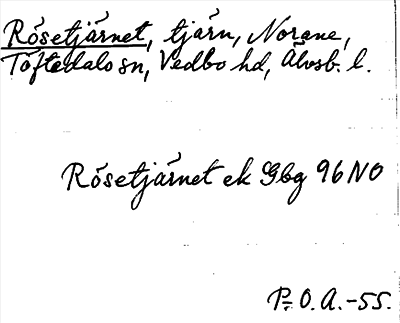 Rösetjärnet, tjärn, Norane,
Töftedalo sn, Vedbo hd, Älvsb. l.
Rösetjärnet ek Gbg 96 NO
P. O. A. -55.